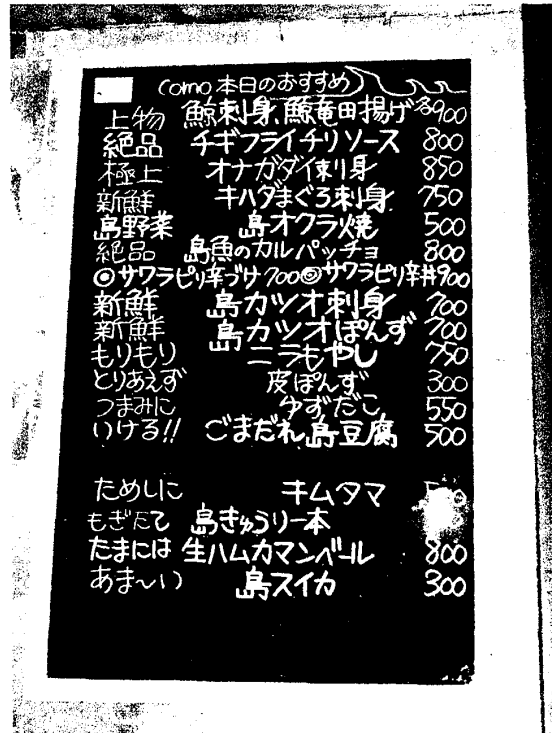 como 本日のおすすめ
上物 鯨刺身、鯨竜田揚げ 各900
絶品 チギフライチリソース 800
極上 オナガダイ刺り身 850
新鮮 キハダまぐろ刺身 750
島野菜 島オクラ焼 500
絶品 島魚のカルパッチョ 800
◎サワラピリ辛づけ700◎サワラピリ辛丼900
新鮮 島カツオ刺身 700
新鮮 島カツオぽんず 700
もりもり ニラもやし 750
とりあえず 皮ぽんず 300
つまみに ゆずだこ 550
いける!! ごまだれ島豆腐 500
ためしに キムタマ
もぎたて 島きゅうり一本
たまには 生ハムカマンベール 800
あま〜い 島スイカ 300